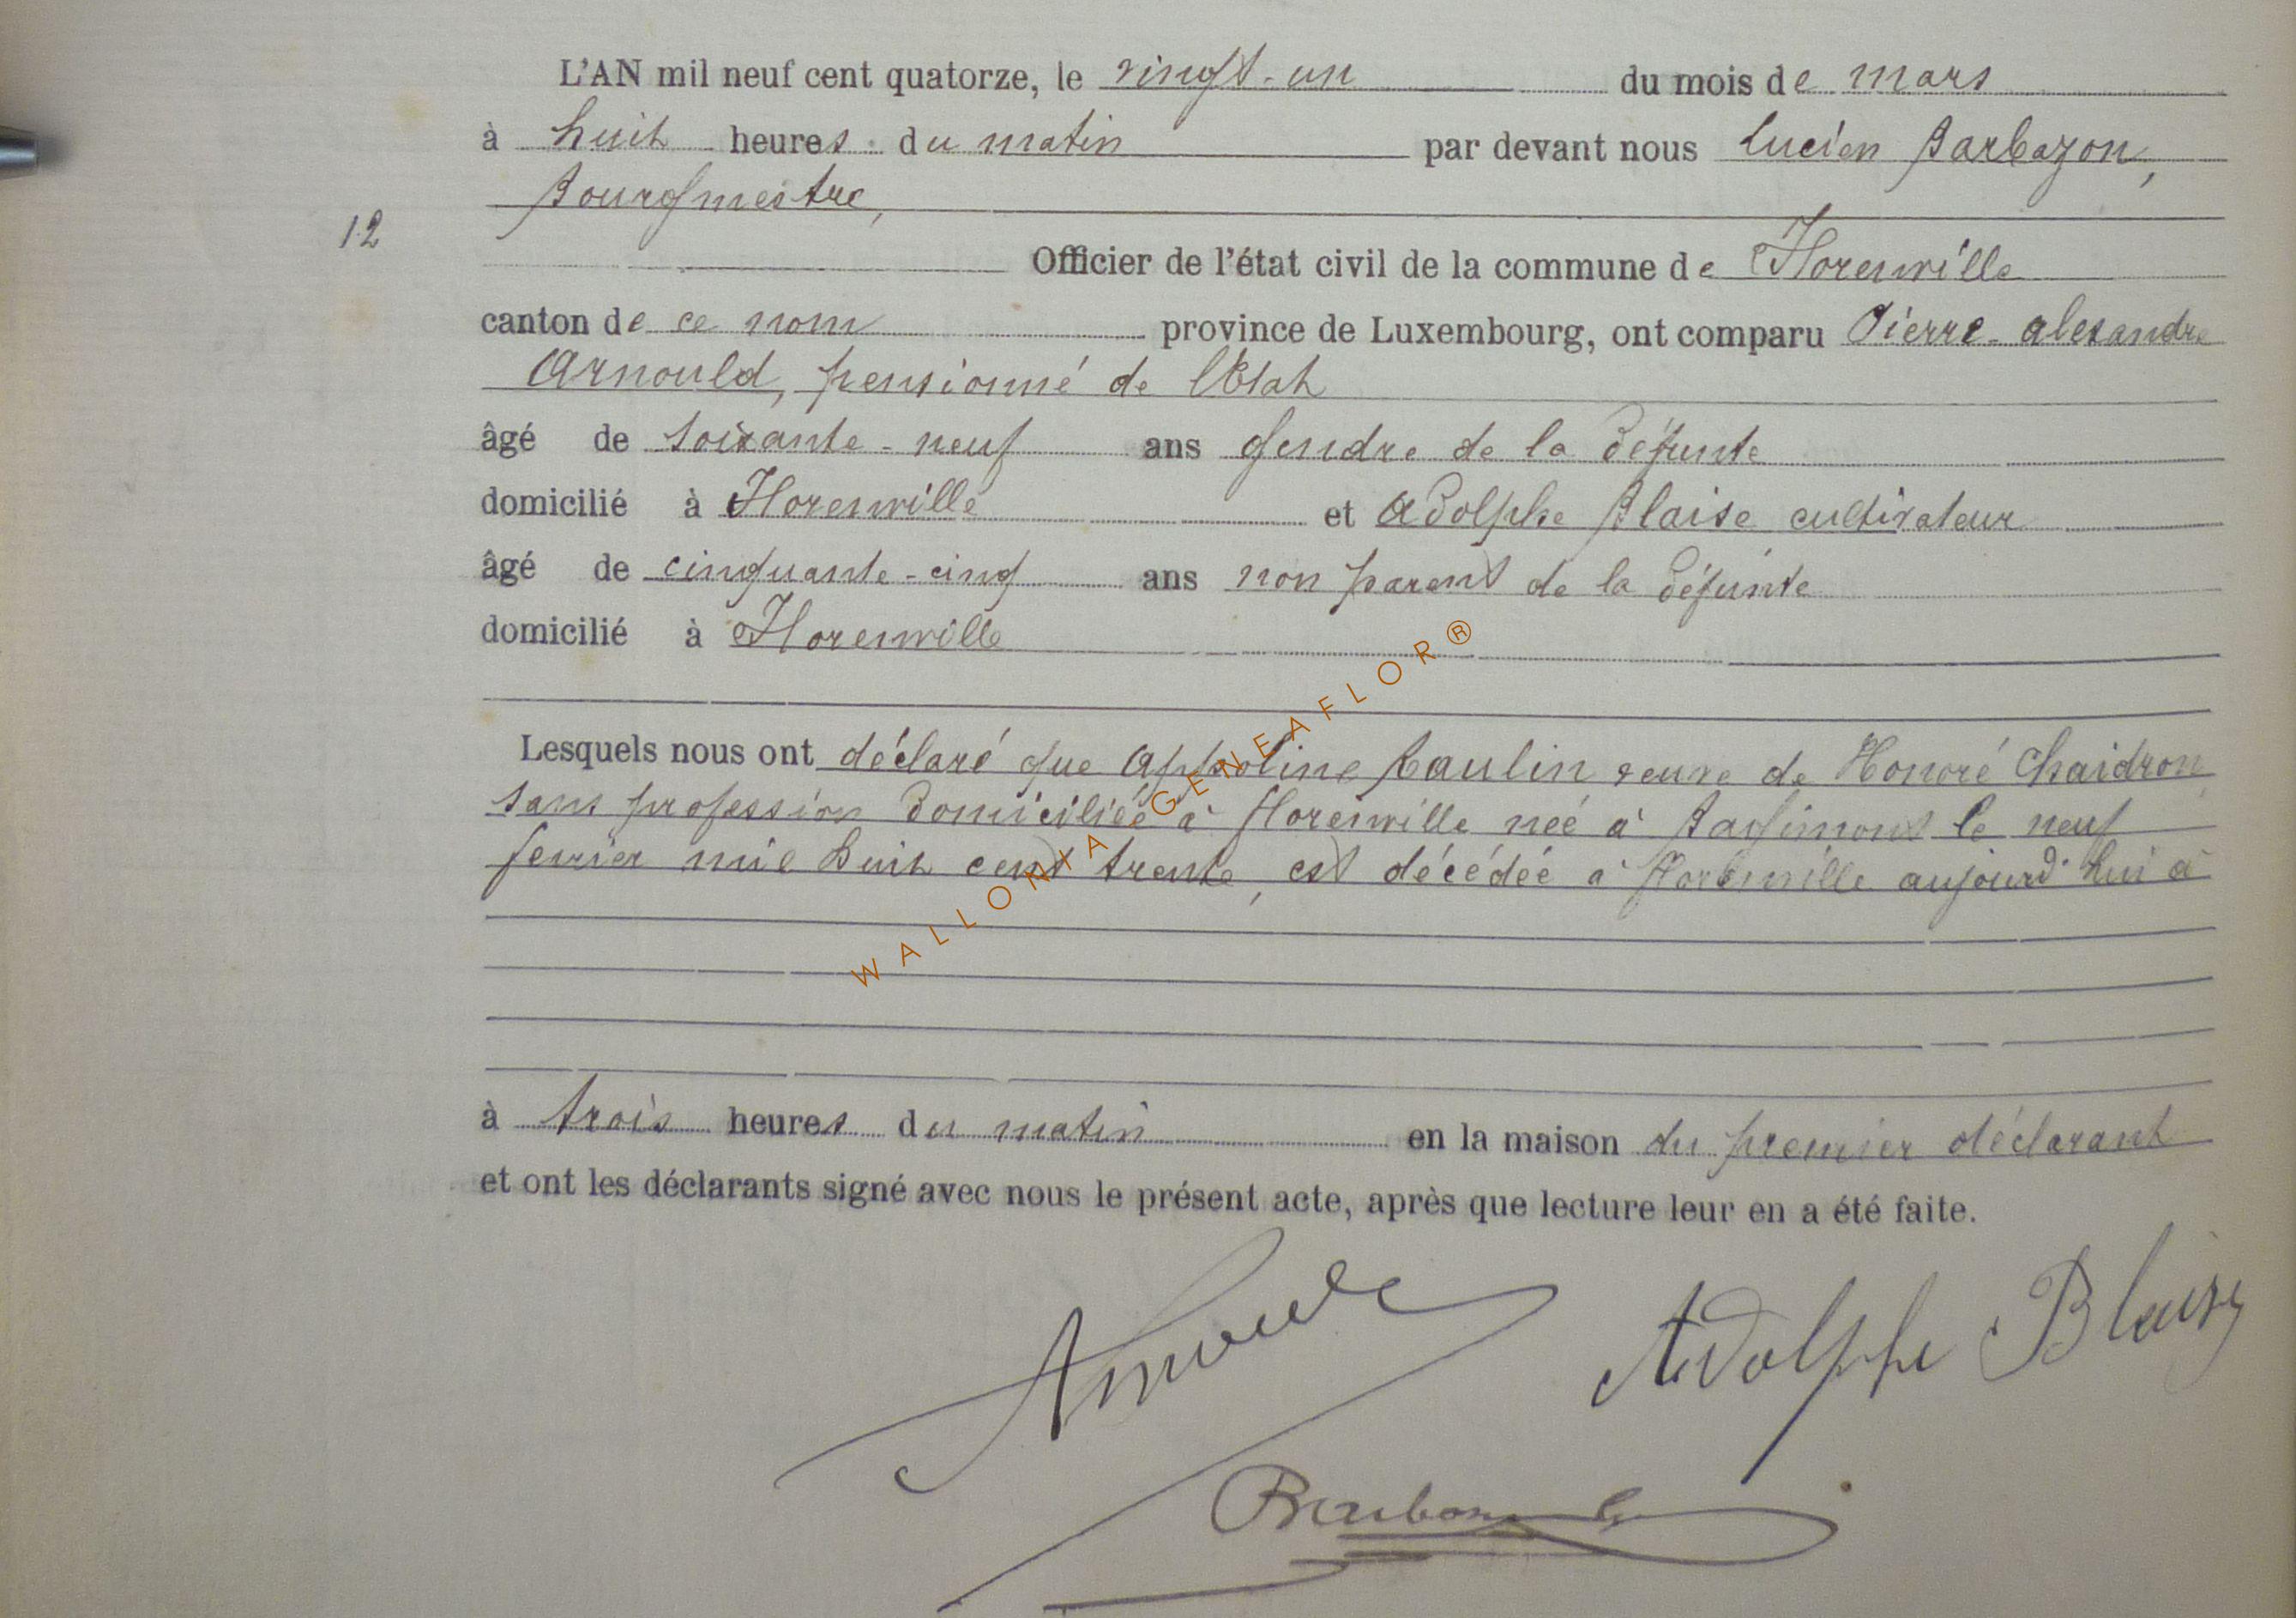 L'AN mil neuf cent quatorze, le vingt-un du mois de mars
à huit heures du matin par devant nous Lucien Barbazon,
Bourgmestre,
12
Officier de l'état civil de la commune de Florenville
canton de ce nom province de Luxembourg, ont comparu Pierre-alexandre
Arnould, pensionné de l'Etat
âgé de soixante-neuf ans gendre de la défunte
domicilié à Florenville et Adolphe Blaise cultivateur
âgé de cinquante-cinq ans non parent de la défunte
domicilié à Florenville
Lesquels nous ont déclaré que Appoline Raulin veuve de Honoré Chaidron
sans profession domiciliée à Florenville née à Bagimont le neuf
fevrier mil huit cent trente, est décédée à Florenville aujourd'hui à
à trois heures du matin en la maison du premier déclarant
et ont les déclarants signé avec nous le présent acte, après que lecture leur en a été faite.
Arnould
Adolphe Blaise
WALLONIA GENEAFLOR®